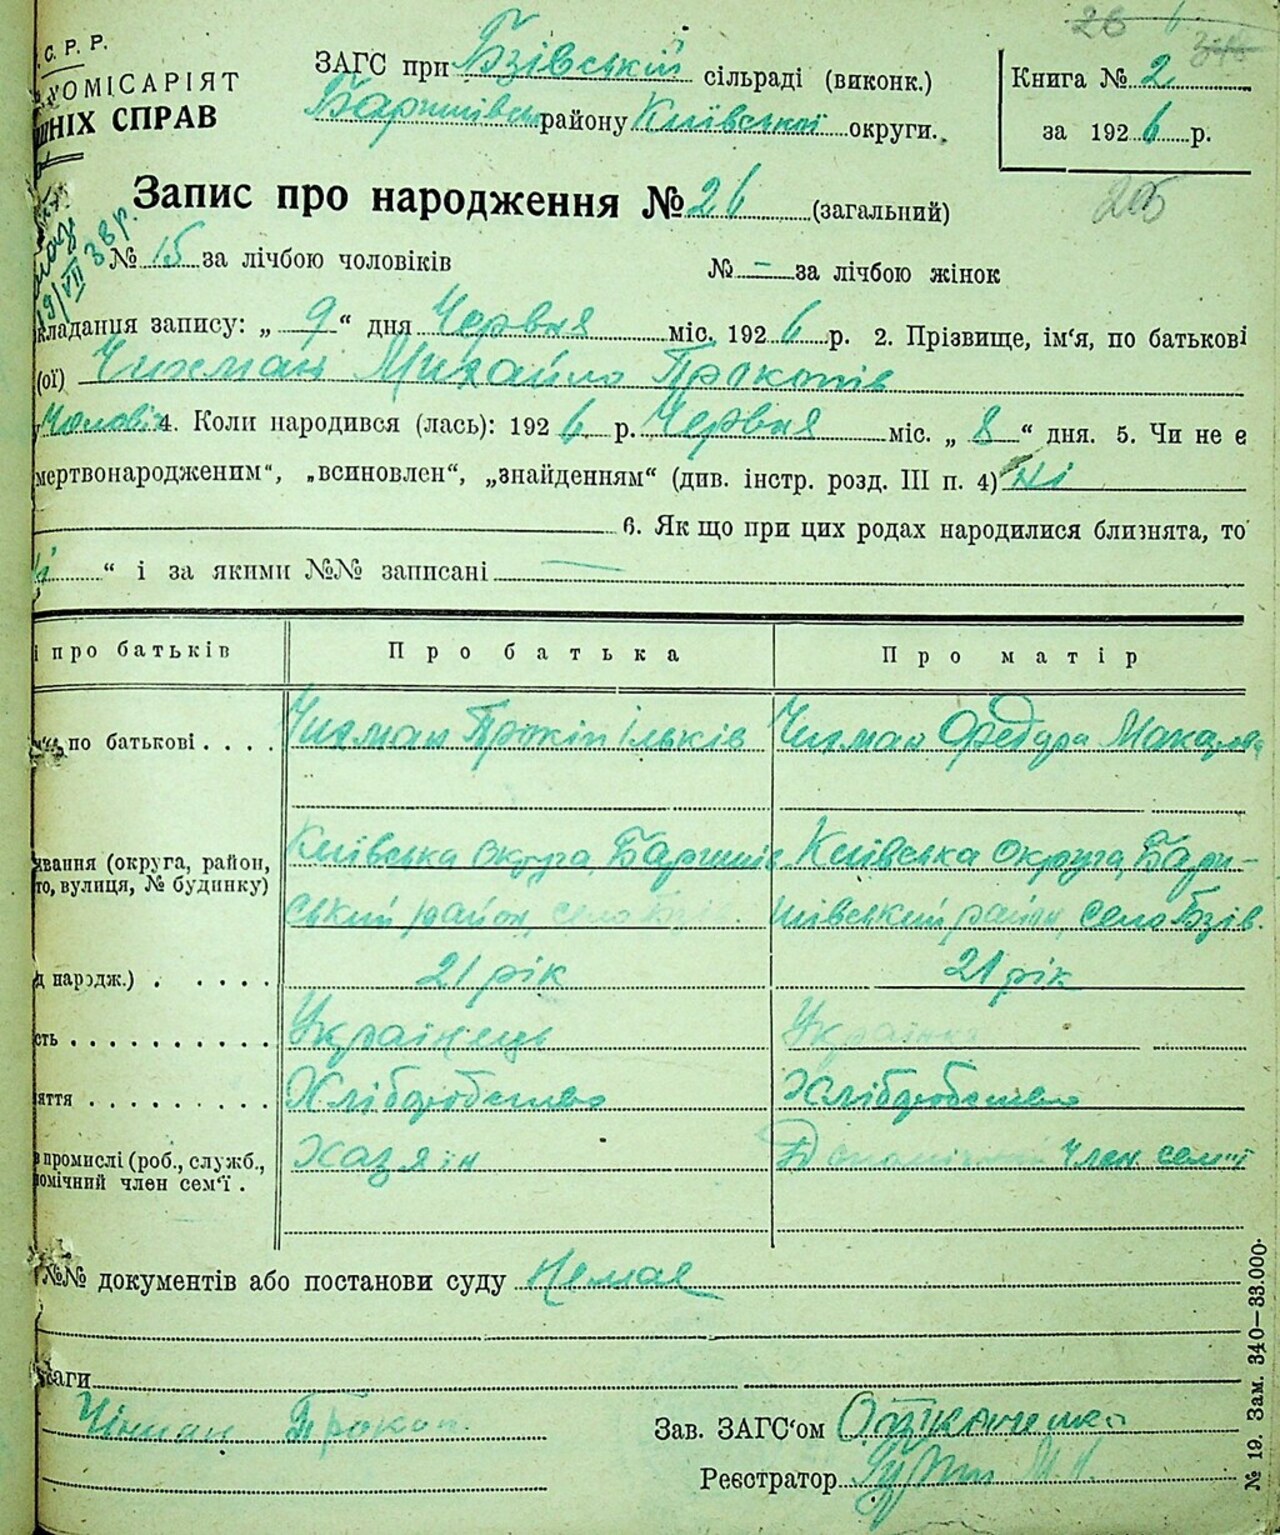 26
С. Р. Р.
ОМІСАРІЯТ
НІХ СПРАВ
ЗАГС при Бзівській сільраді (виконк.)
Баришівськ району Київської округи.
Книга № 2
за 1926 р.
Запис про народження № 26 (загальний)
19/VII 38 р.
№ 15 за лічбою чоловіків
№ - за лічбою жінок
кладання запису: „ 9 “ дня Червня міс. 1926 р. 2. Прізвище, ім‘я, по батькові
(ої) Чихман Михайло Прокопів
Чолов 4. Коли народився (лась): 1926 р. Червня міс. „ 8 “ дня. 5. Чи не є
мертвонародженим“, „всиновлен“, „знайденням“ (див. інстр. розд. III п. 4) Ні
6. Як що при цих родах народилися близнята, то
“ і за якими №№ записані —
і про батьків
Про батька
Про матір
по батькові . . . .
Чихман Прокіп Ільків
Чихман Федора Макарова
вання (округа, район,
то, вулиця, № будинку)
Київська округа, Баришів
ський район, село Бзів.
Київська округа, Бари-
шівський район, село Бзів.
д народж.) . . . . .
21 рік
21 рік
сть . . . . . . . . . .
Українець
Українка
яття . . . . . . . . .
Хліборобство
Хліборобство
в промислі (роб., служб.,
омічний член сем‘ї .
Хазяїн
Допоміжний член сем'ї
№№ документів або постанови суду Немає
аги
Чихман Прокоп.
Зав. ЗАГС‘ом
Реєстратор
№ 19. Зам. 340—33.000.